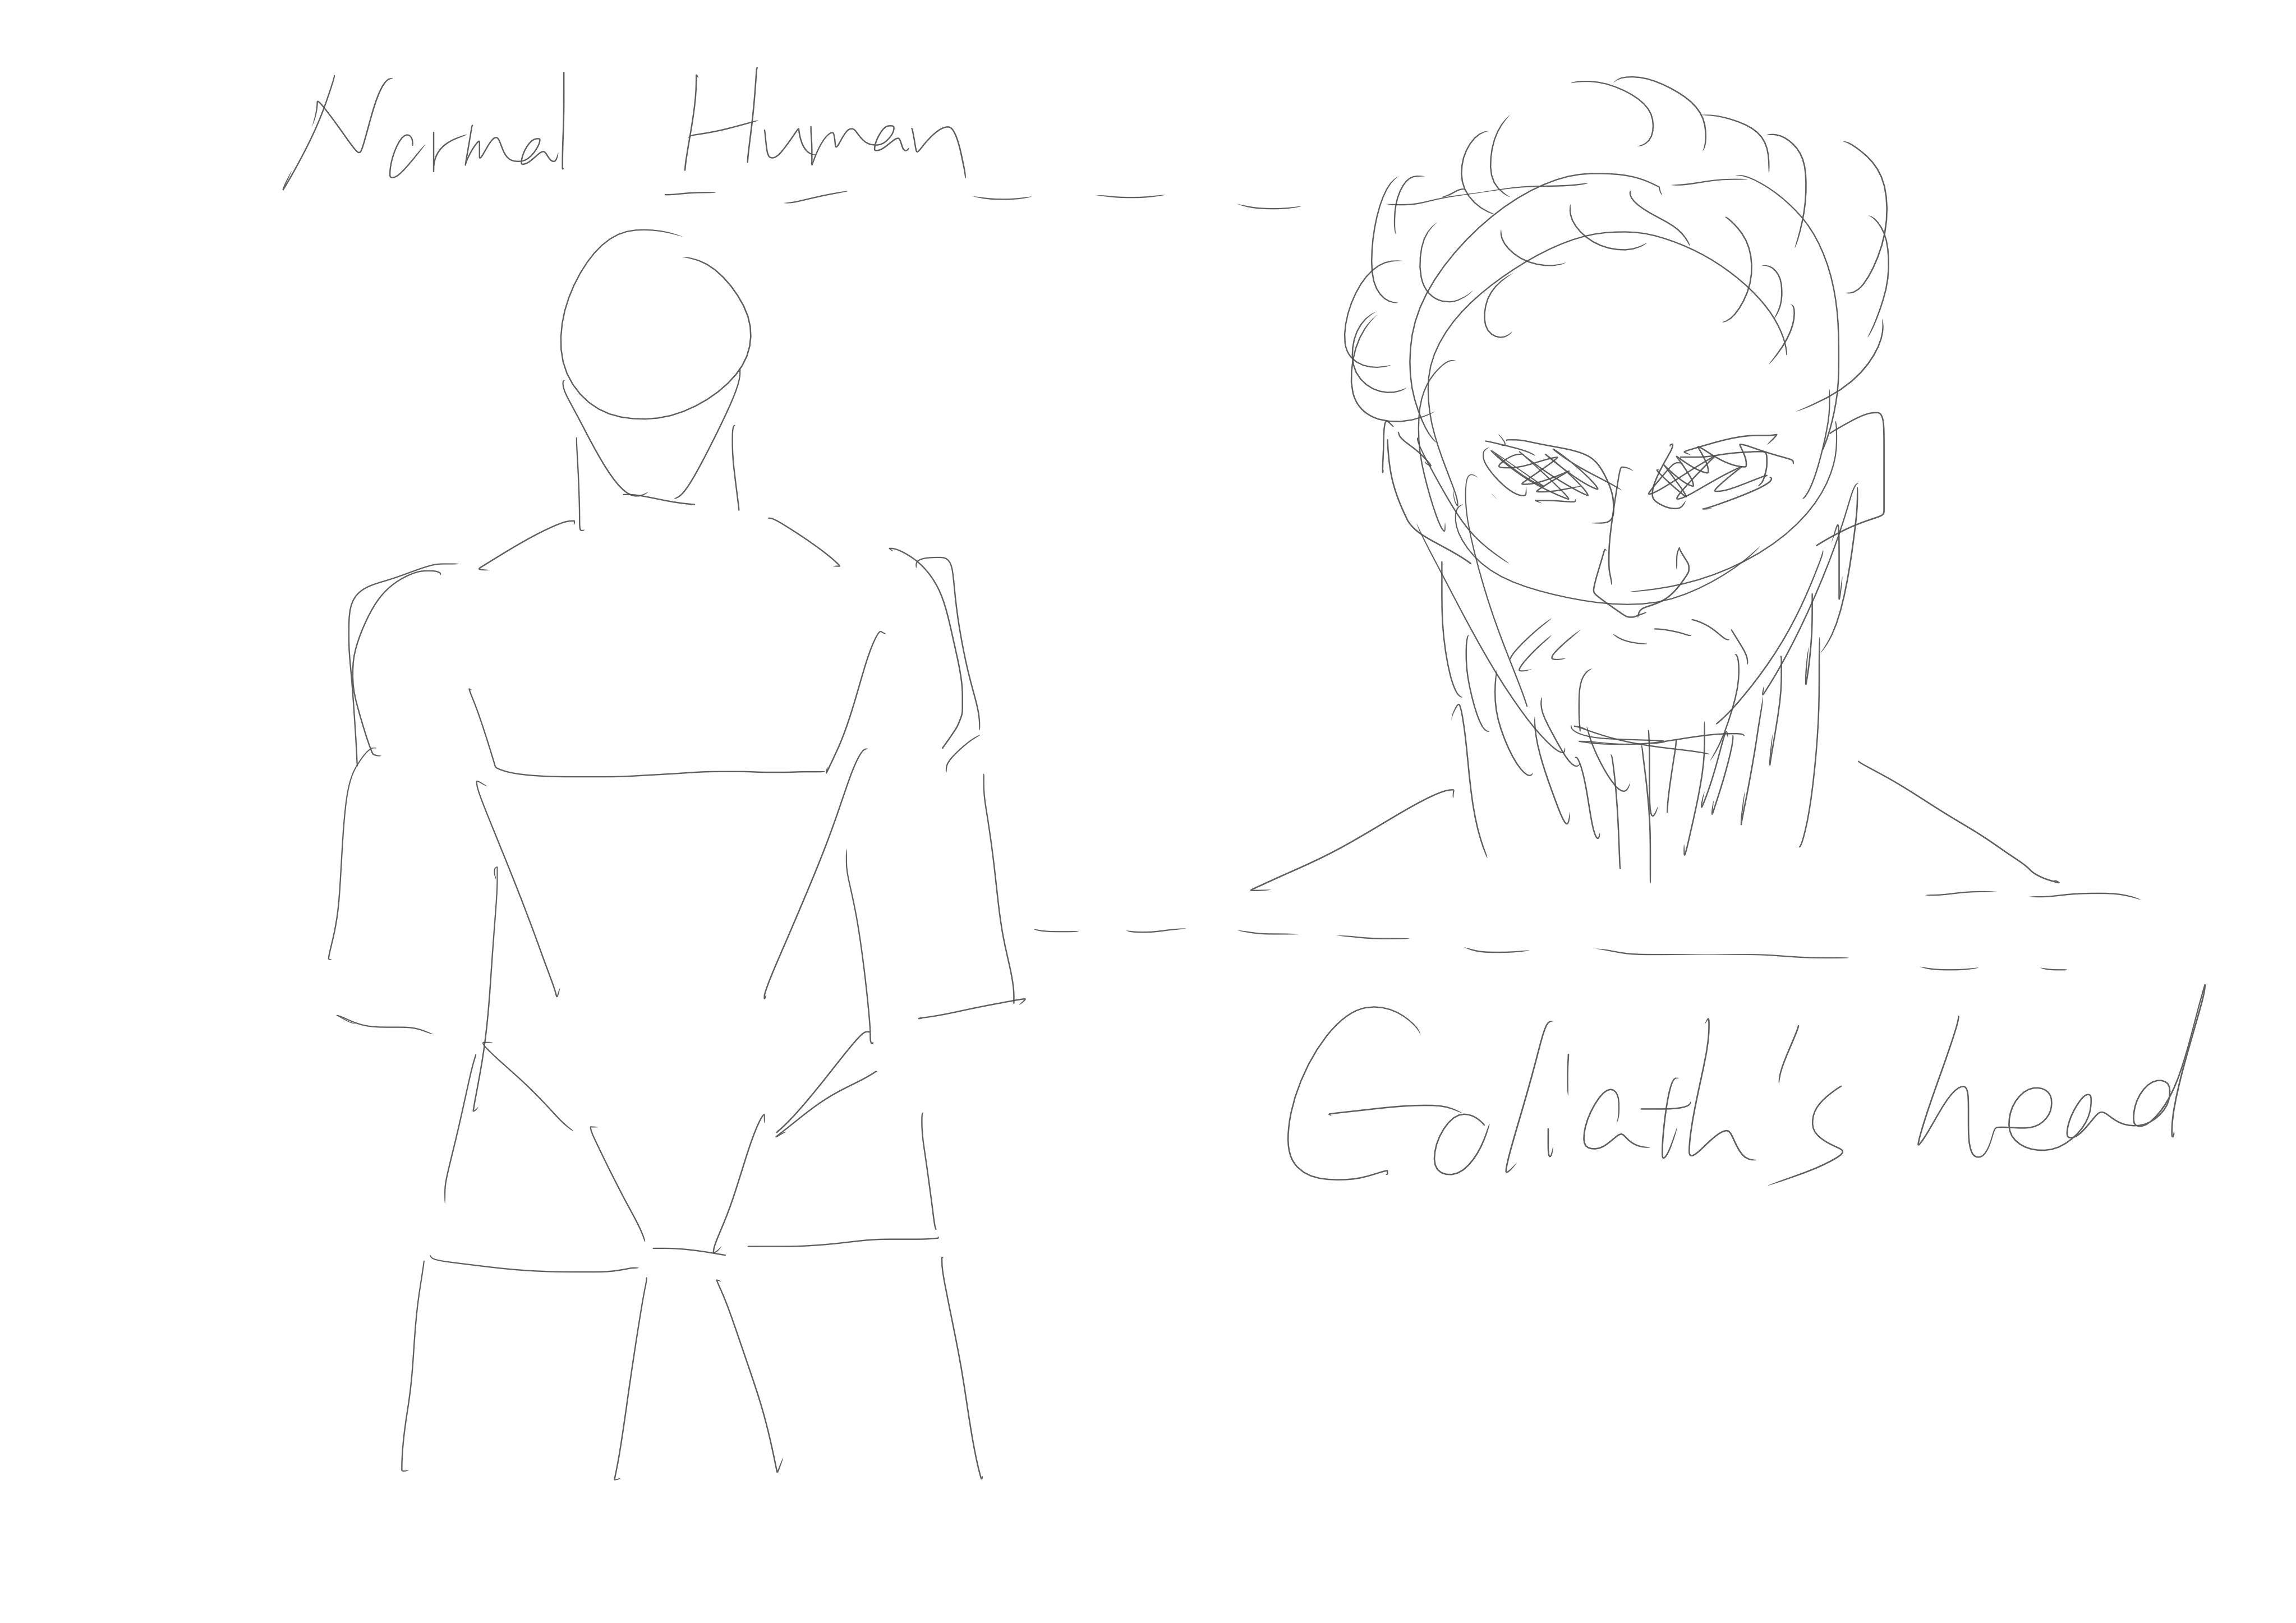 Normal Human
Goliath's head